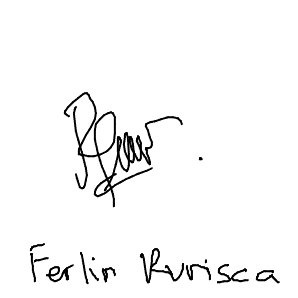 Ferlin Rurisca